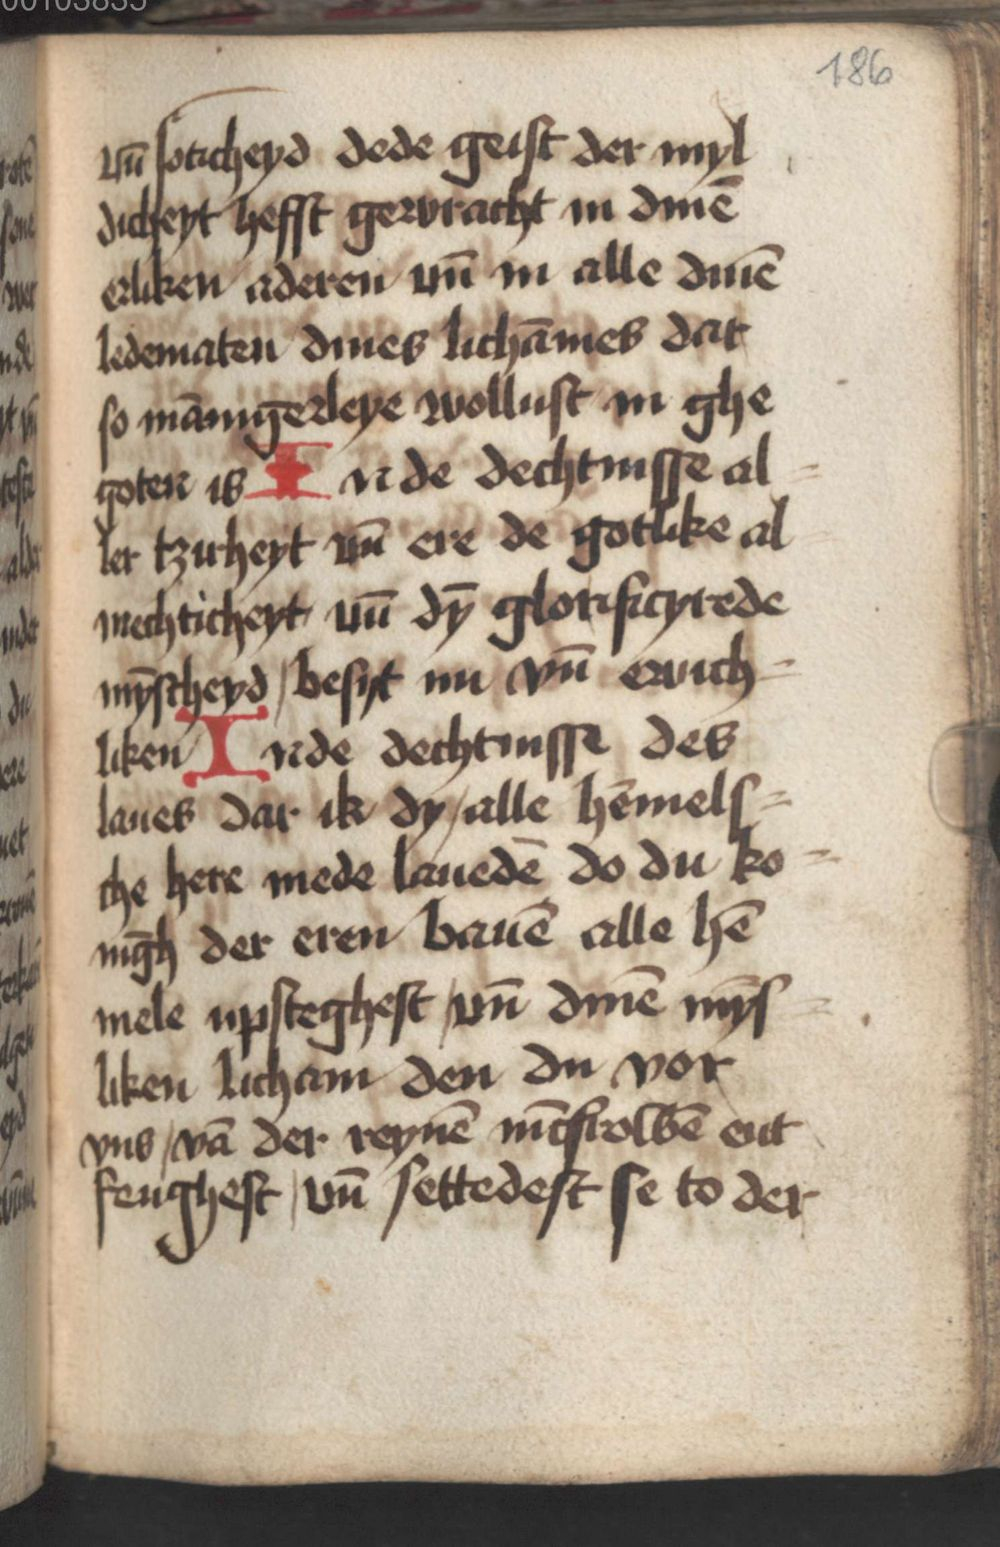 186
vn̄ soticheyd dede geist der myl
dicheyt hefft gewracht in dinē
erliken aderen vn̄ in alle dinē
ledematen dines lichāmes dat
so mānigerleye wollust in ghe
goten is In de dechtnisse al-
ler tzirheyt vn̄ ere de gotlike al-
mechticheyt vn̄ dȳ glorificyrede
mȳscheyd / besiit nu vn̄ ewich-
liken In de dechtnisse des
laues dar ik dy / alle hēmels-
che here mede lauedē do du ko-
nīgh der eren bauē alle hē
mele upsteghest / vn̄ dinē mȳs-
liken licham den du vor
vns / vā der reynē
fenghest / vn̄ settedest se to der